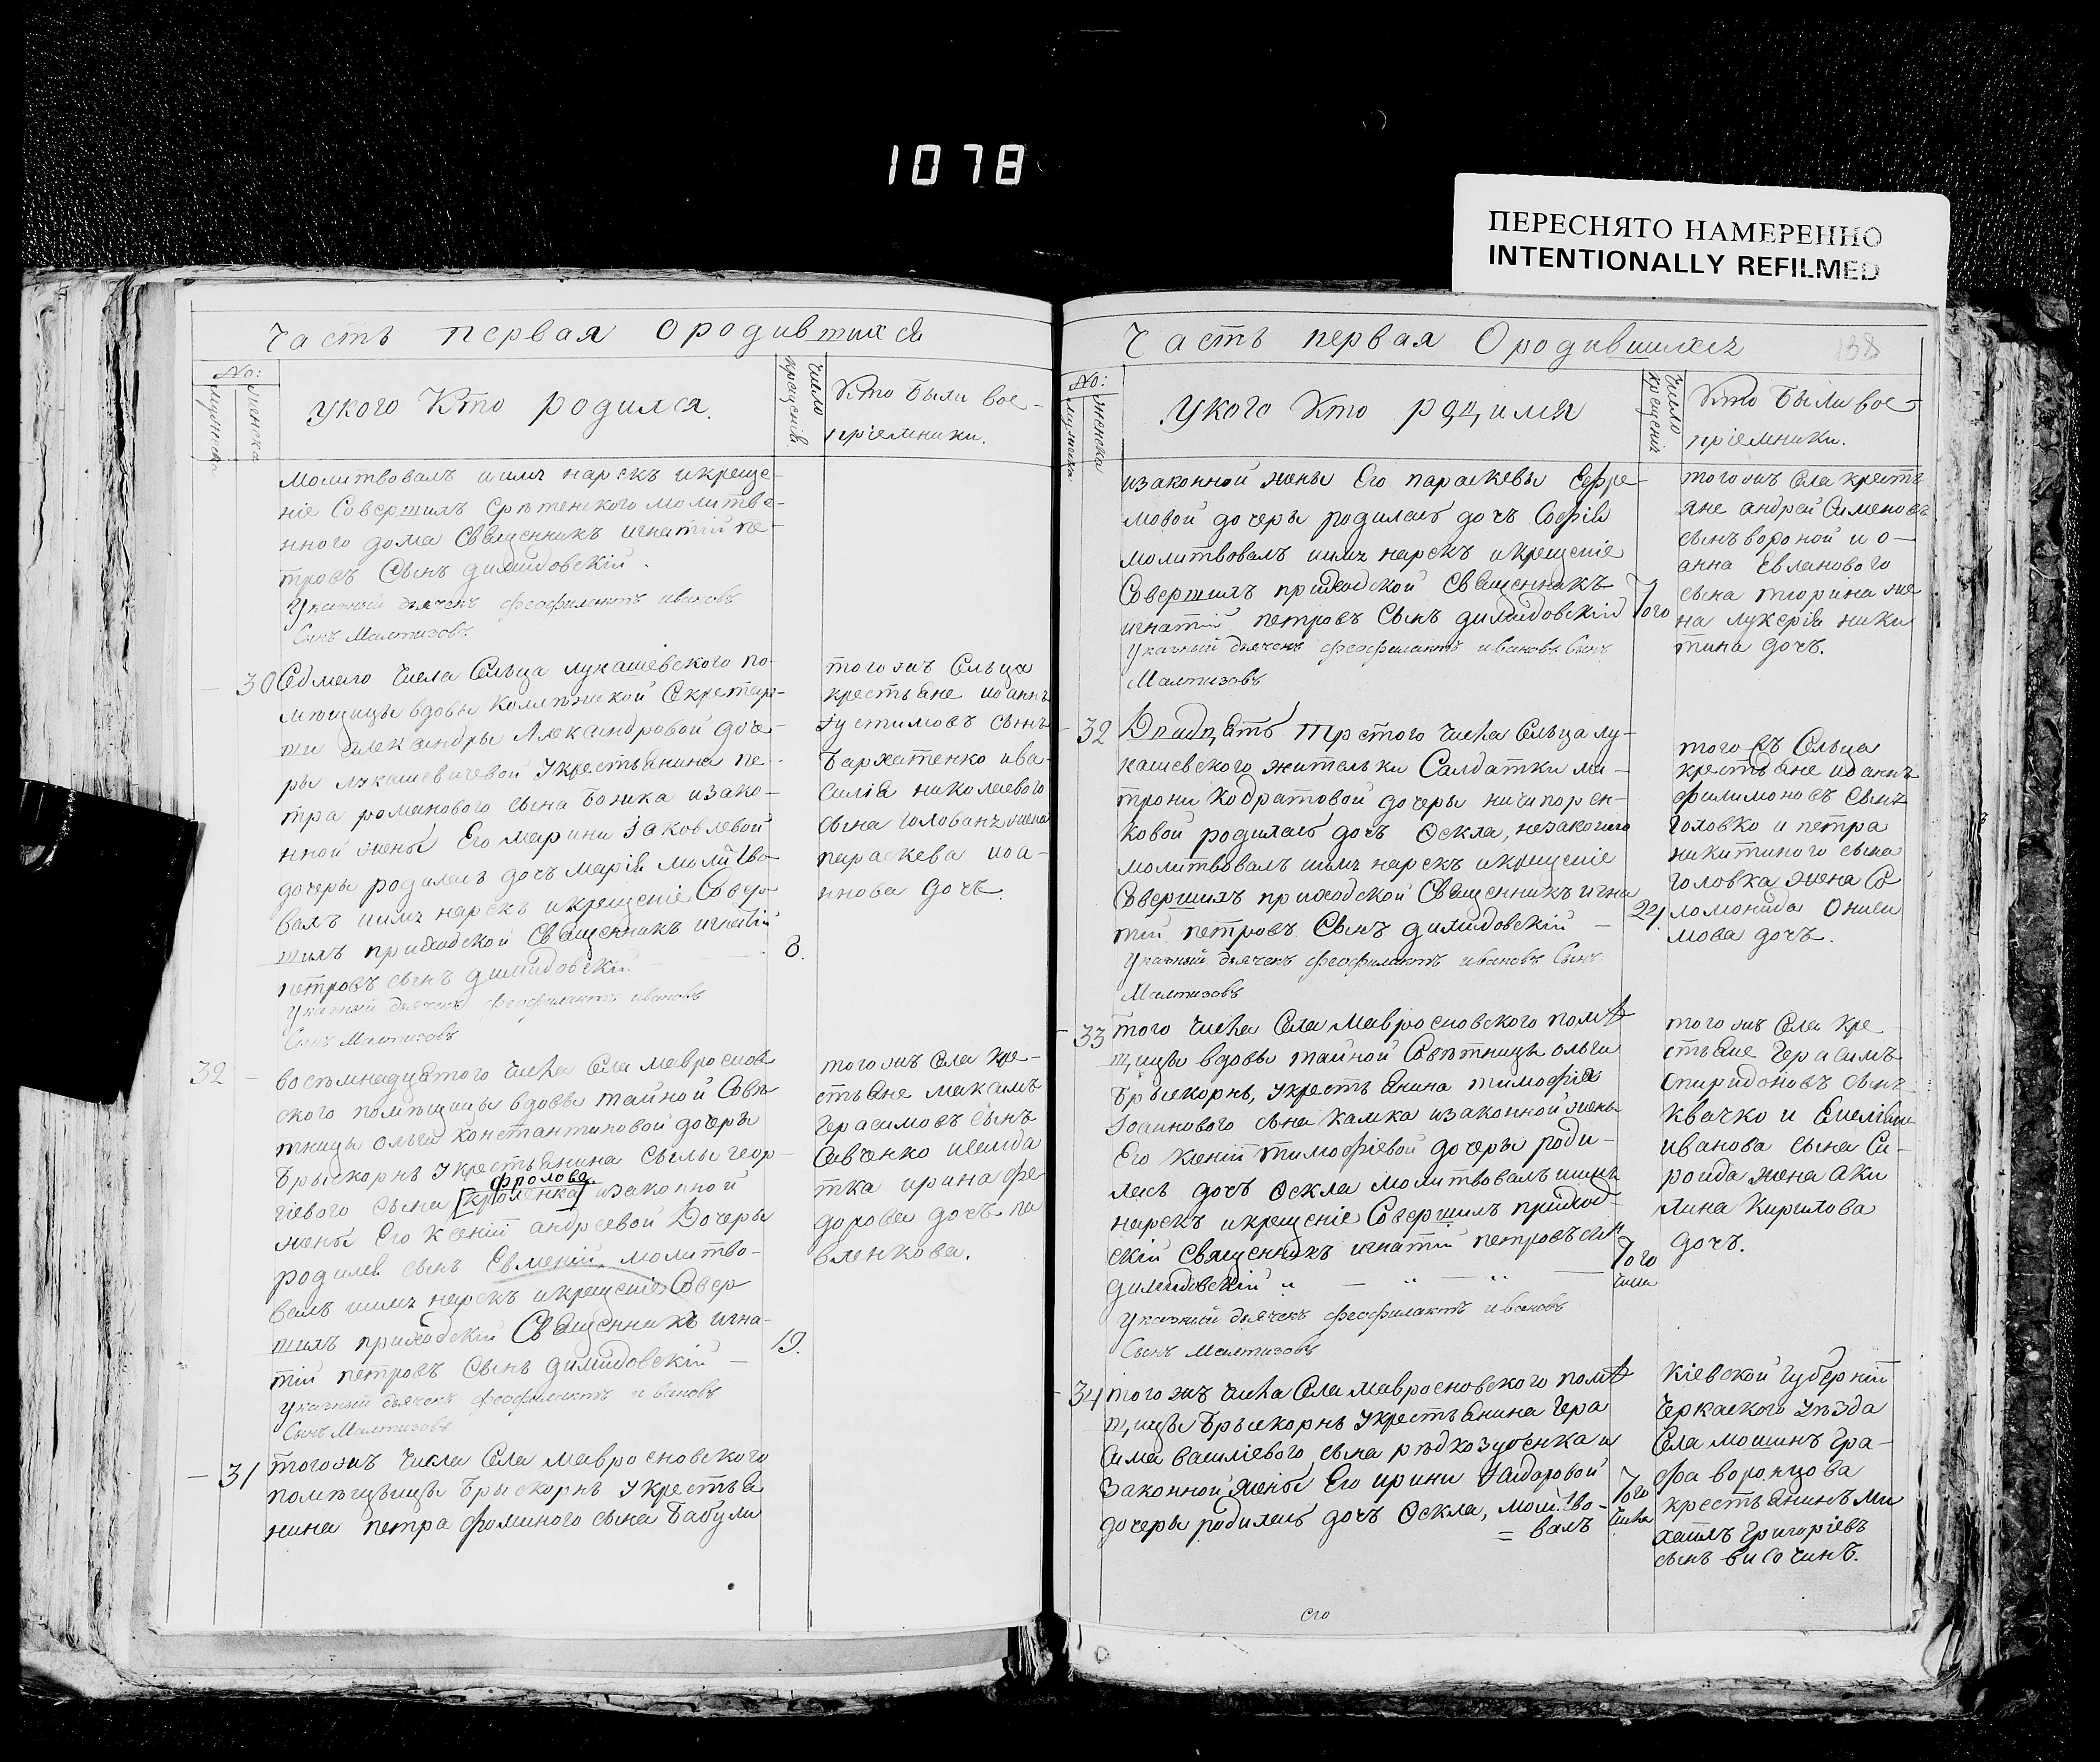 1078
ПЕРЕСНЯТО НАМЕРЕННО
INTENTIONALLY REFILMED
Часть первая Ородившихся
No:
мужеска
женска
укого Кто родился.
число
крещенія
Кто были вос-
пріемники.
молитвовалъ иимя нарекъ икреще-
ніе Совершилъ Срѣтенского молитве-
нного дома Священникъ игнатій пе-
тровъ Сынъ димидовскій.
Указный дьячекъ феофилактъ ивановъ
Сынъ Малтизовъ
30 Седмаго числа Сельца лукашевского по-
мѣщицы вдовы Коллѣжской Секретар-
ши Александры Александровой доче-
ры лукашевичевой укрестьянина пе-
тра романового сына божка изако-
нной жены Его марини Іаковлевой
дочеры родилась дочъ марія молитво-
валъ иимя нарекъ икрещеніе Совер-
шилъ приходской Священникъ игнатій
петровъ сынъ димидовскій
8.
Указный дьячекъ феофилактъ ивановъ
Сынъ Малтизовъ
тогожъ Сельца
крестьяне иоаннъ
Іустимовъ сынъ
бархатенко ива-
силія николаевого
сына голованъ жена
параскева иоа-
ннова дочъ.
32 - восѣмнадцятого числа Села мавроснов
ского помѣщицы вдовы тайной Совѣ
тници ольги константиновой дочеры
брыскорнъ укрестьянина Сылы геор-
фролова
гіевого сына [кроленка] изаконной
жены Его ксеніи андреевой Дочеры
родился сынъ Евменій молитво-
валъ иимя нарекъ икрещеніе Совер
шилъ приходскій Священникъ игна-
тій петровъ Сынъ димидовскій -
19.
Указный дьячекъ феофилактъ ивановъ
Сынъ Малтизовъ
тогожъ Села кре-
стьяне максимъ
герасимовъ сынъ
Савченко исолда
тка ирина фе-
дорова дочъ па
вленкова.
- 31 тогожъ числа Села мавросновского
помѣщицы брыскорнъ укрестья
нина петра фоминого сына бабули
Часть первая Ородившихся
138
No:
мужеска
женска
укого Кто родился
число
крещенія
Кто были вос-
пріемники.
изаконной жены Его параскевы Ефре-
мовой дочеры родилась дочъ Софія
молитвовалъ иимя нарекъ икрещеніе
Совершилъ приходской Священникъ
игнатій петровъ Сынъ димидовскій
Того
Указный дьячекъ феофилактъ ивановъ Сынъ
Малтизовъ
тогожъ Села кресть
яне андрей Сименовъ
сынъ вороной и о-
анна Евланового
сына тюрина же
на лукерія ники
тина дочъ.
- 32 Двадцять третого числа Сельца лу-
кашевского жительки Салдатки ма-
трони кодратовой дочеры ничипорен-
ковой родилась дочъ Фекла, незаконно
молитвовалъ иимя нарекъ икрещеніе
Совершилъ приходской Священникъ игна
тій петровъ Сынъ димидовскій -
24.
Указный дьячекъ феофилактъ ивановъ Сынъ
Малтизовъ
тогожъ Сельца
крестьяне иоаннъ
филимоновъ сынъ
головко и петра
никитиного сына
головка жена Со
ломонида Ониси
мова дочъ.
- 33 того числа Села Мавросновского помѣ
щицы вдовы тайной Совѣтницы ольги
брыскорнъ, укрестьянина тимофія
Іоаннового сына камка изаконной жены
Его ксеніи тимофіевой дочеры роди-
лась дочъ Фекла молитвовалъ иимя
нарекъ икрещеніе Совершилъ приход-
скій Священникъ игнатій петровъ сынъ
димидовскій
Того
числа
Указный дьячекъ феофилактъ ивановъ
Сынъ Малтизовъ
тогожъ Села кре
стьяне герасимъ
спиридоновъ сынъ
квачко и
иванова сына Си-
роида жена аки
лина кирилова
дочъ.
- 34 тогожъ числа Села мавросновского помѣ
щицы брыскорнъ укрестьянина гера
сима василіевого сына рѣдкозубенка и
законной жены Его ирини
дочеры родилась дочъ Фекла, молитво-
= валъ
Того
числа
Кіевской губерніи
Черкаского уѣзда
Села мошинъ гра-
фа воронцова
крестьянинъ ми
хаилъ григоріевъ
сынъ височинъ.
его